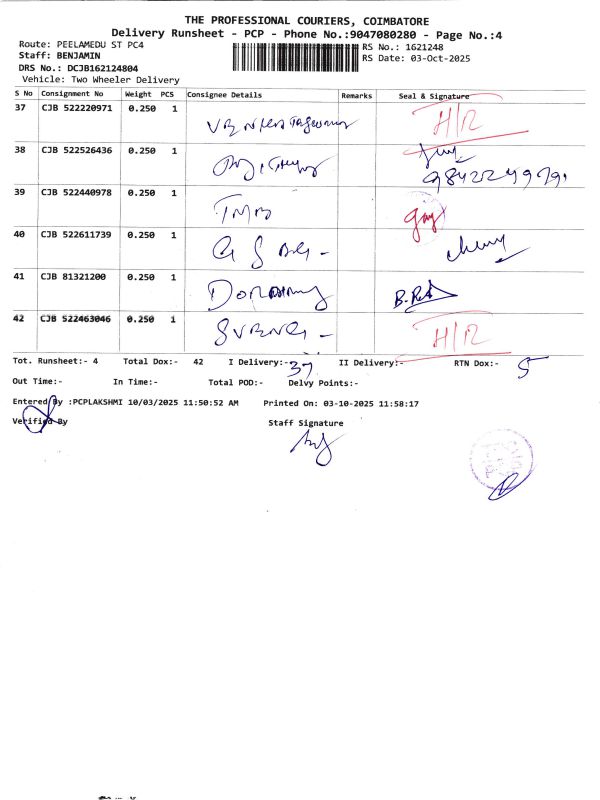 THE PROFESSIONAL COURIERS, COIMBATORE
Delivery Runsheet - PCP - Phone No.:9047080280 - Page No.:4
Route: PEELAMEDU ST PC4
RS No.: 1621248
Staff: BENJAMIN
RS Date: 03-Oct-2025
DRS No.: DCJB162124804
Vehicle: Two Wheeler Delivery
S No Consignment No Weight PCS Consignee Details Remarks Seal & Signature
37 CJB 522220971 0.250 1 H/R
38 CJB 522526436 0.250 1
39 CJB 522440978 0.250 1 TMB
40 CJB 522611739 0.250 1
41 CJB 81321200 0.250 1
42 CJB 522463046 0.250 1 H/R
Tot. Runsheet:- 4 Total Dox:- 42 I Delivery:- 37 II Delivery:- RTN Dox:- 5
Out Time:- In Time:- Total POD:- Delvy Points:-
Entered By :PCPLAKSHMI 10/03/2025 11:50:52 AM Printed On: 03-10-2025 11:58:17
Verified By Staff Signature